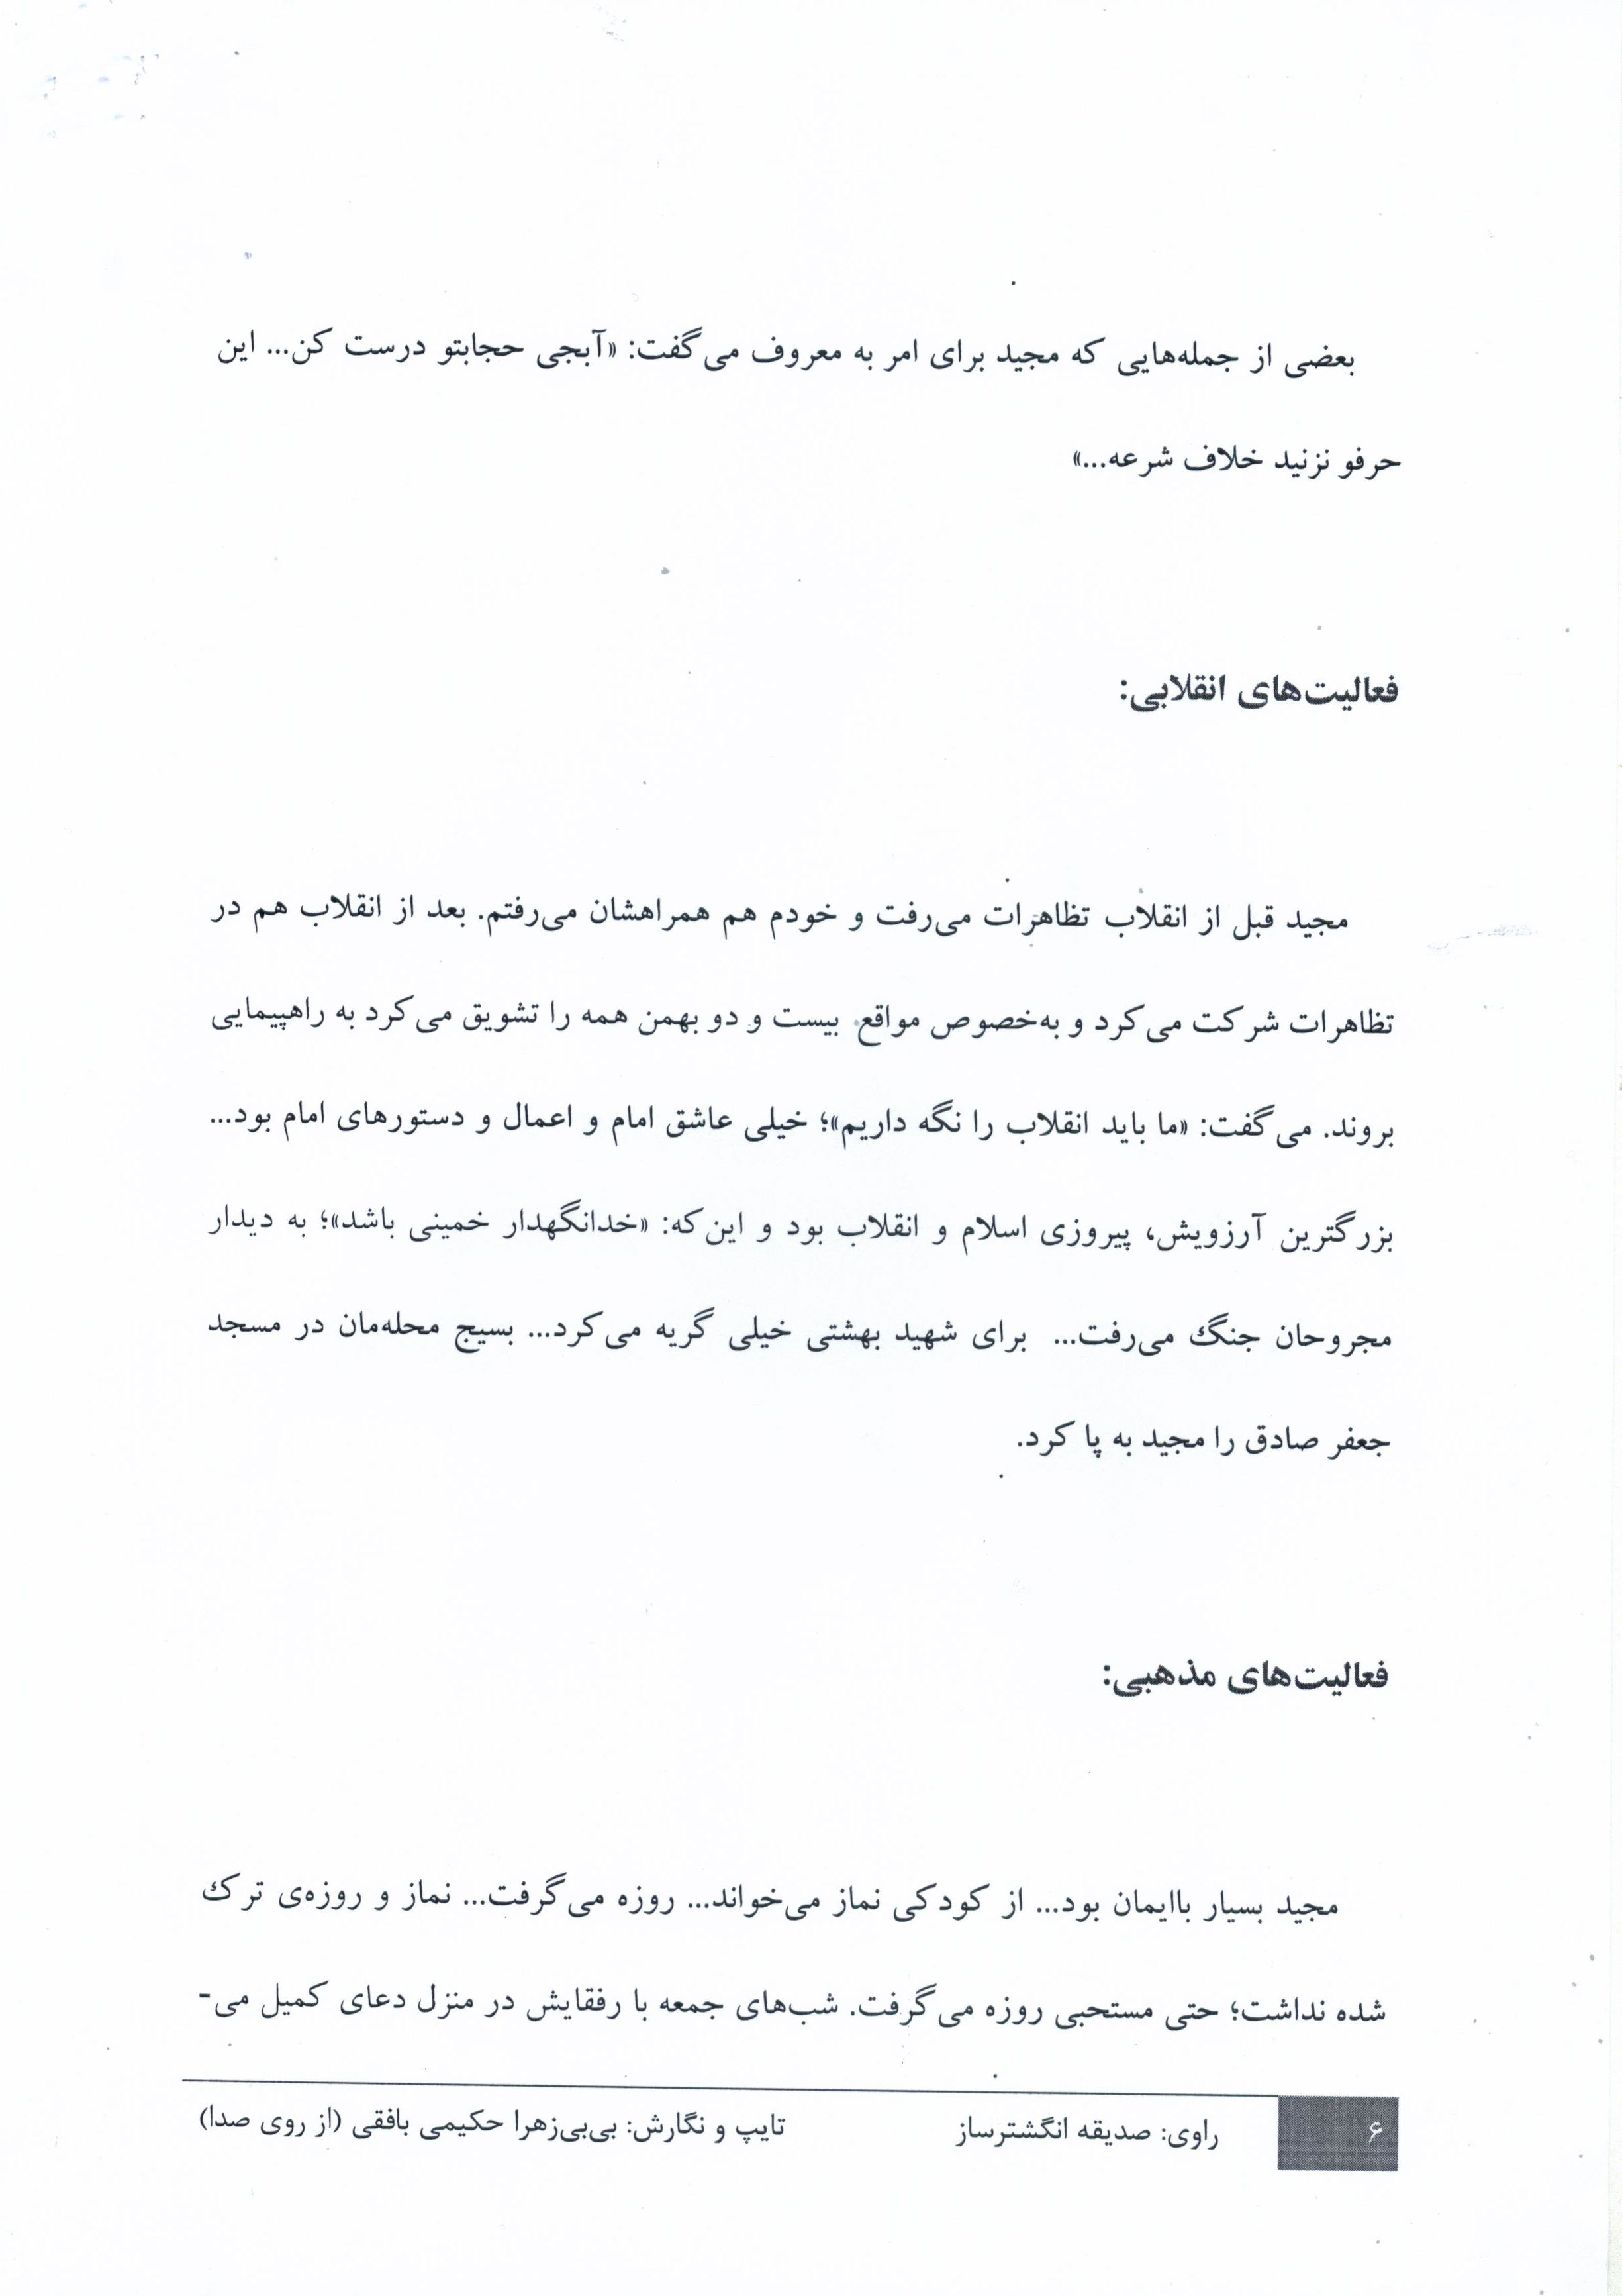 بعضی از جمله‌هایی که مجید برای امر به معروف می‌گفت: «آبجی حجابتو درست کن... این
حرفو نزنید خلاف شرعه...»
فعالیت‌های انقلابی:
مجید قبل از انقلاب تظاهرات می‌رفت و خودم هم همراهشان می‌رفتم. بعد از انقلاب هم در
تظاهرات شرکت می‌کرد و به‌خصوص مواقع بیست و دو بهمن همه را تشویق می‌کرد به راهپیمایی
بروند. می‌گفت: «ما باید انقلاب را نگه داریم»؛ خیلی عاشق امام و اعمال و دستورهای امام بود...
بزرگترین آرزویش، پیروزی اسلام و انقلاب بود و این‌که: «خدانگهدار خمینی باشد»؛ به دیدار
مجروحان جنگ می‌رفت... برای شهید بهشتی خیلی گریه می‌کرد... بسیج محله‌مان در مسجد
جعفر صادق را مجید به پا کرد.
فعالیت‌های مذهبی:
مجید بسیار باایمان بود... از کودکی نماز می‌خواند... روزه می‌گرفت... نماز و روزه‌ی ترک
شده نداشت؛ حتی مستحبی روزه می‌گرفت. شب‌های جمعه با رفقایش در منزل دعای کمیل می-
۶ راوی: صدیقه انگشترساز تایپ و نگارش: بی‌بی‌زهرا حکیمی بافقی (از روی صدا)